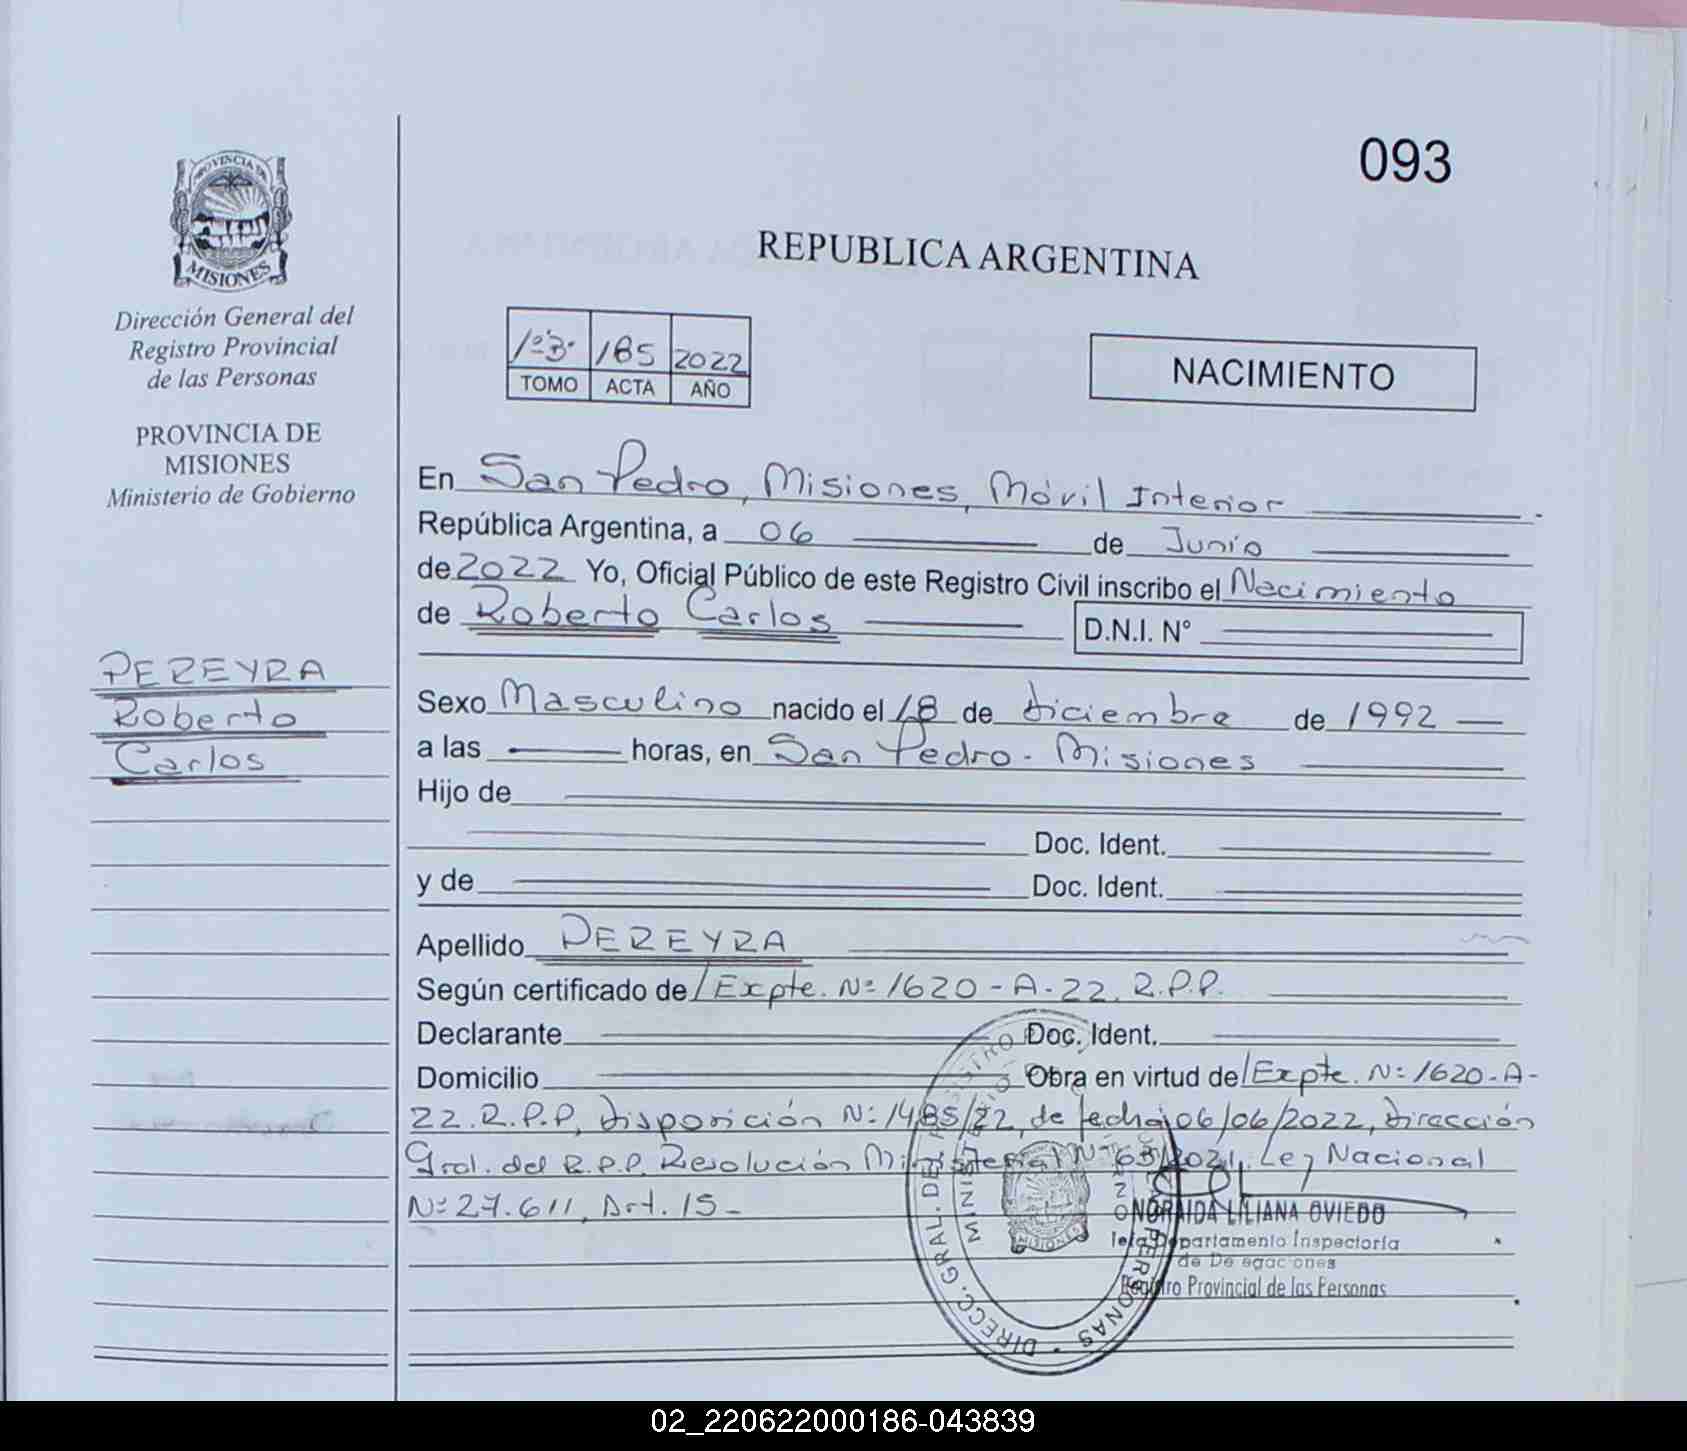 093
PROVINCIA DE
MISIONES
REPUBLICA ARGENTINA
Dirección General del
Registro Provincial
de las Personas
PROVINCIA DE
MISIONES
Ministerio de Gobierno
1º"B" 185 2022
TOMO ACTA AÑO
NACIMIENTO
En San Pedro, Misiones, Móvil Interior
República Argentina, a 06 de Junio
de 2022 Yo, Oficial Público de este Registro Civil inscribo el Nacimiento
de Roberto Carlos D.N.I. N°
PEREYRA
Roberto
Carlos
Sexo Masculino nacido el 18 de diciembre de 1992
a las horas, en San Pedro - Misiones
Hijo de
Doc. Ident.
y de Doc. Ident.
Apellido PEREYRA
Según certificado de Expte. Nº 1620-A-22. R.P.P.
Declarante Doc. Ident.
Domicilio Obra en virtud de Expte. Nº 1620-A-
22.R.P.P, disposición Nº 1485/22, de fecha 06/06/2022, dirección
Gral. del R.P.P. Resolución Ministerial Nº 63/2021. Ley Nacional
Nº 27.611, Art. 15-
NORAIDA LILIANA OVIEDO
Jefa Departamento Inspectoría
de Delegaciones
Registro Provincial de las Personas
02_220622000186-043839